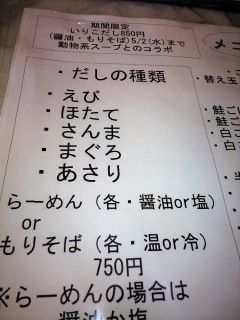 期間限定
いりこだし850円
(醤油・もりそば)5/2(水)まで
動物系スープとのコラボ
・だしの種類
・えび
・ほたて
・さんま
・まぐろ
・あさり
らーめん(各・醤油or塩)
or
もりそば(各・温or冷)
750円
※らーめんの場合は
醤油か塩
メニ
替え玉
・鮭ご
・鮭ご
・白ご
・白ご